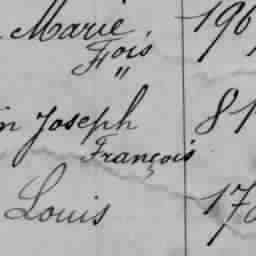 Marie 196
Fois
"
in Joseph 81
François
Louis 170